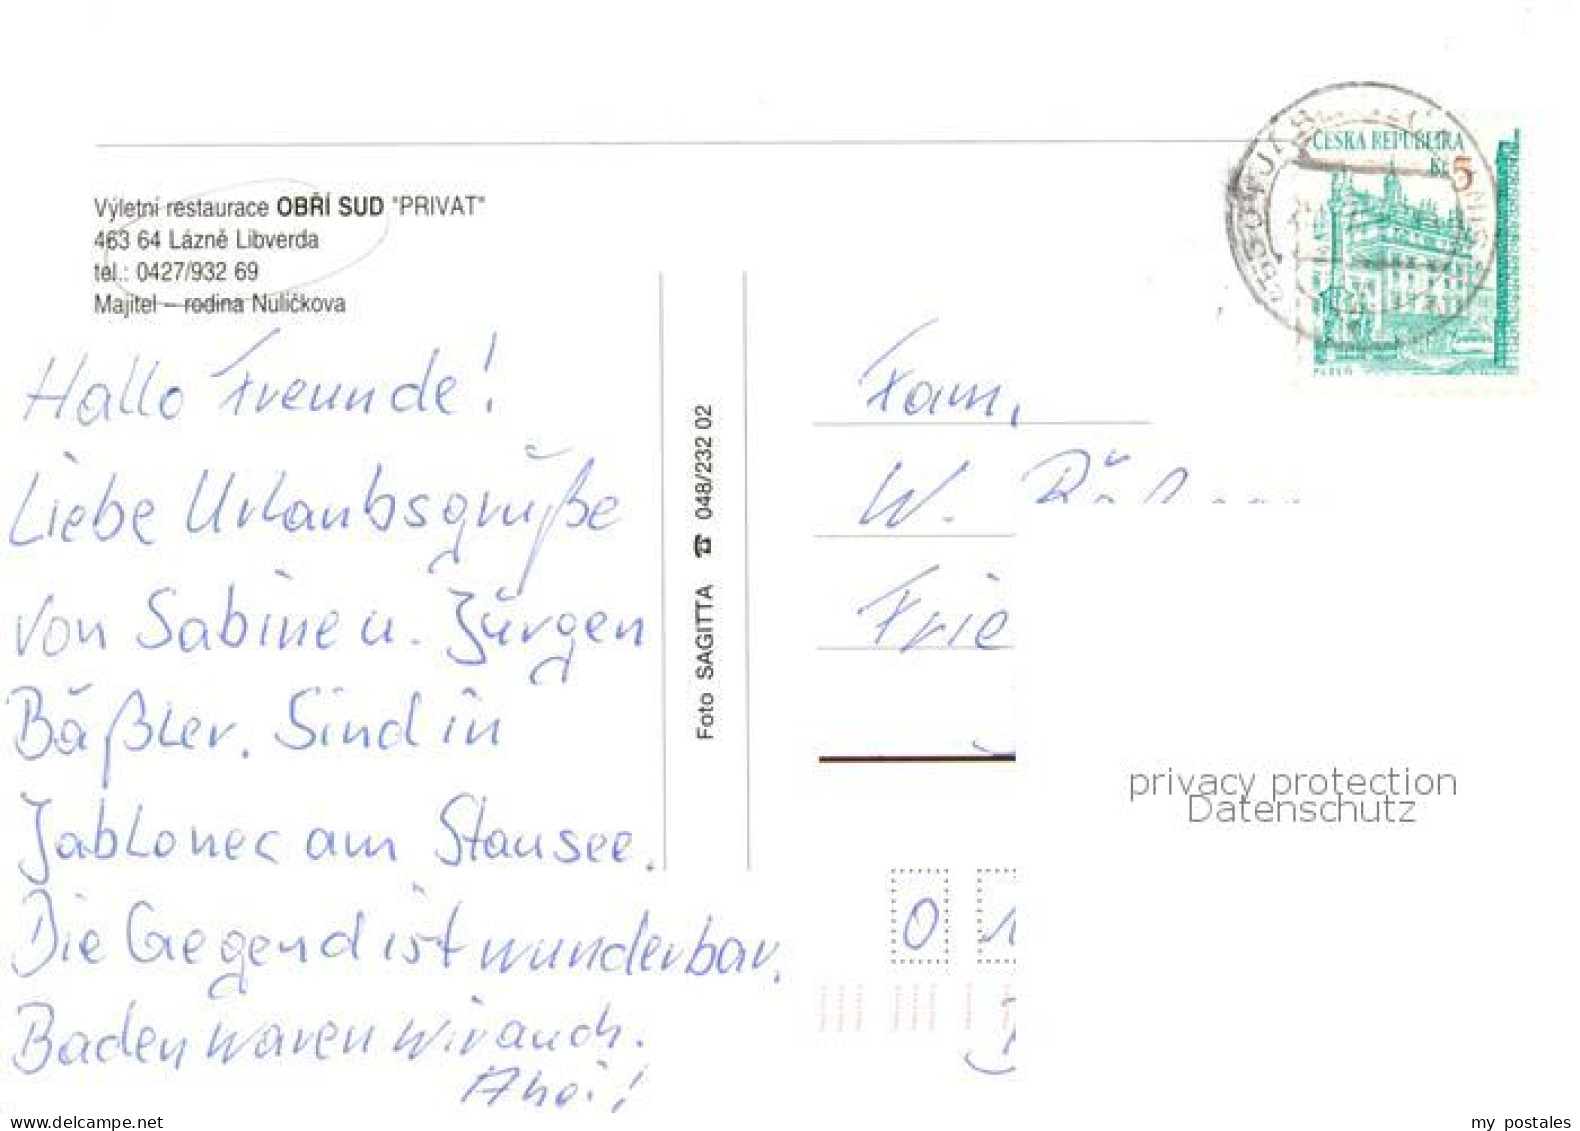 Výletní restaurace OBŘÍ SUD "PRIVAT"
463 64 Lázně Libverda
tel.: 0427/932 69
Majitel – rodina Nuličkova
Hallo Freunde!
Liebe Urlaubsgrüße
von Sabine u. Jürgen
Bäßler. Sind in
Jablonec am Stausee.
Die Gegend ist wunderbar.
Baden waren wir auch.
Ahoi!
Foto SAGITTA ☎ 048/232 02
ČESKÁ REPUBLIKA
Kč 5
Fam.
W.
Frie
0 1
privacy protection
Datenschutz
delcampe.net
my_postales